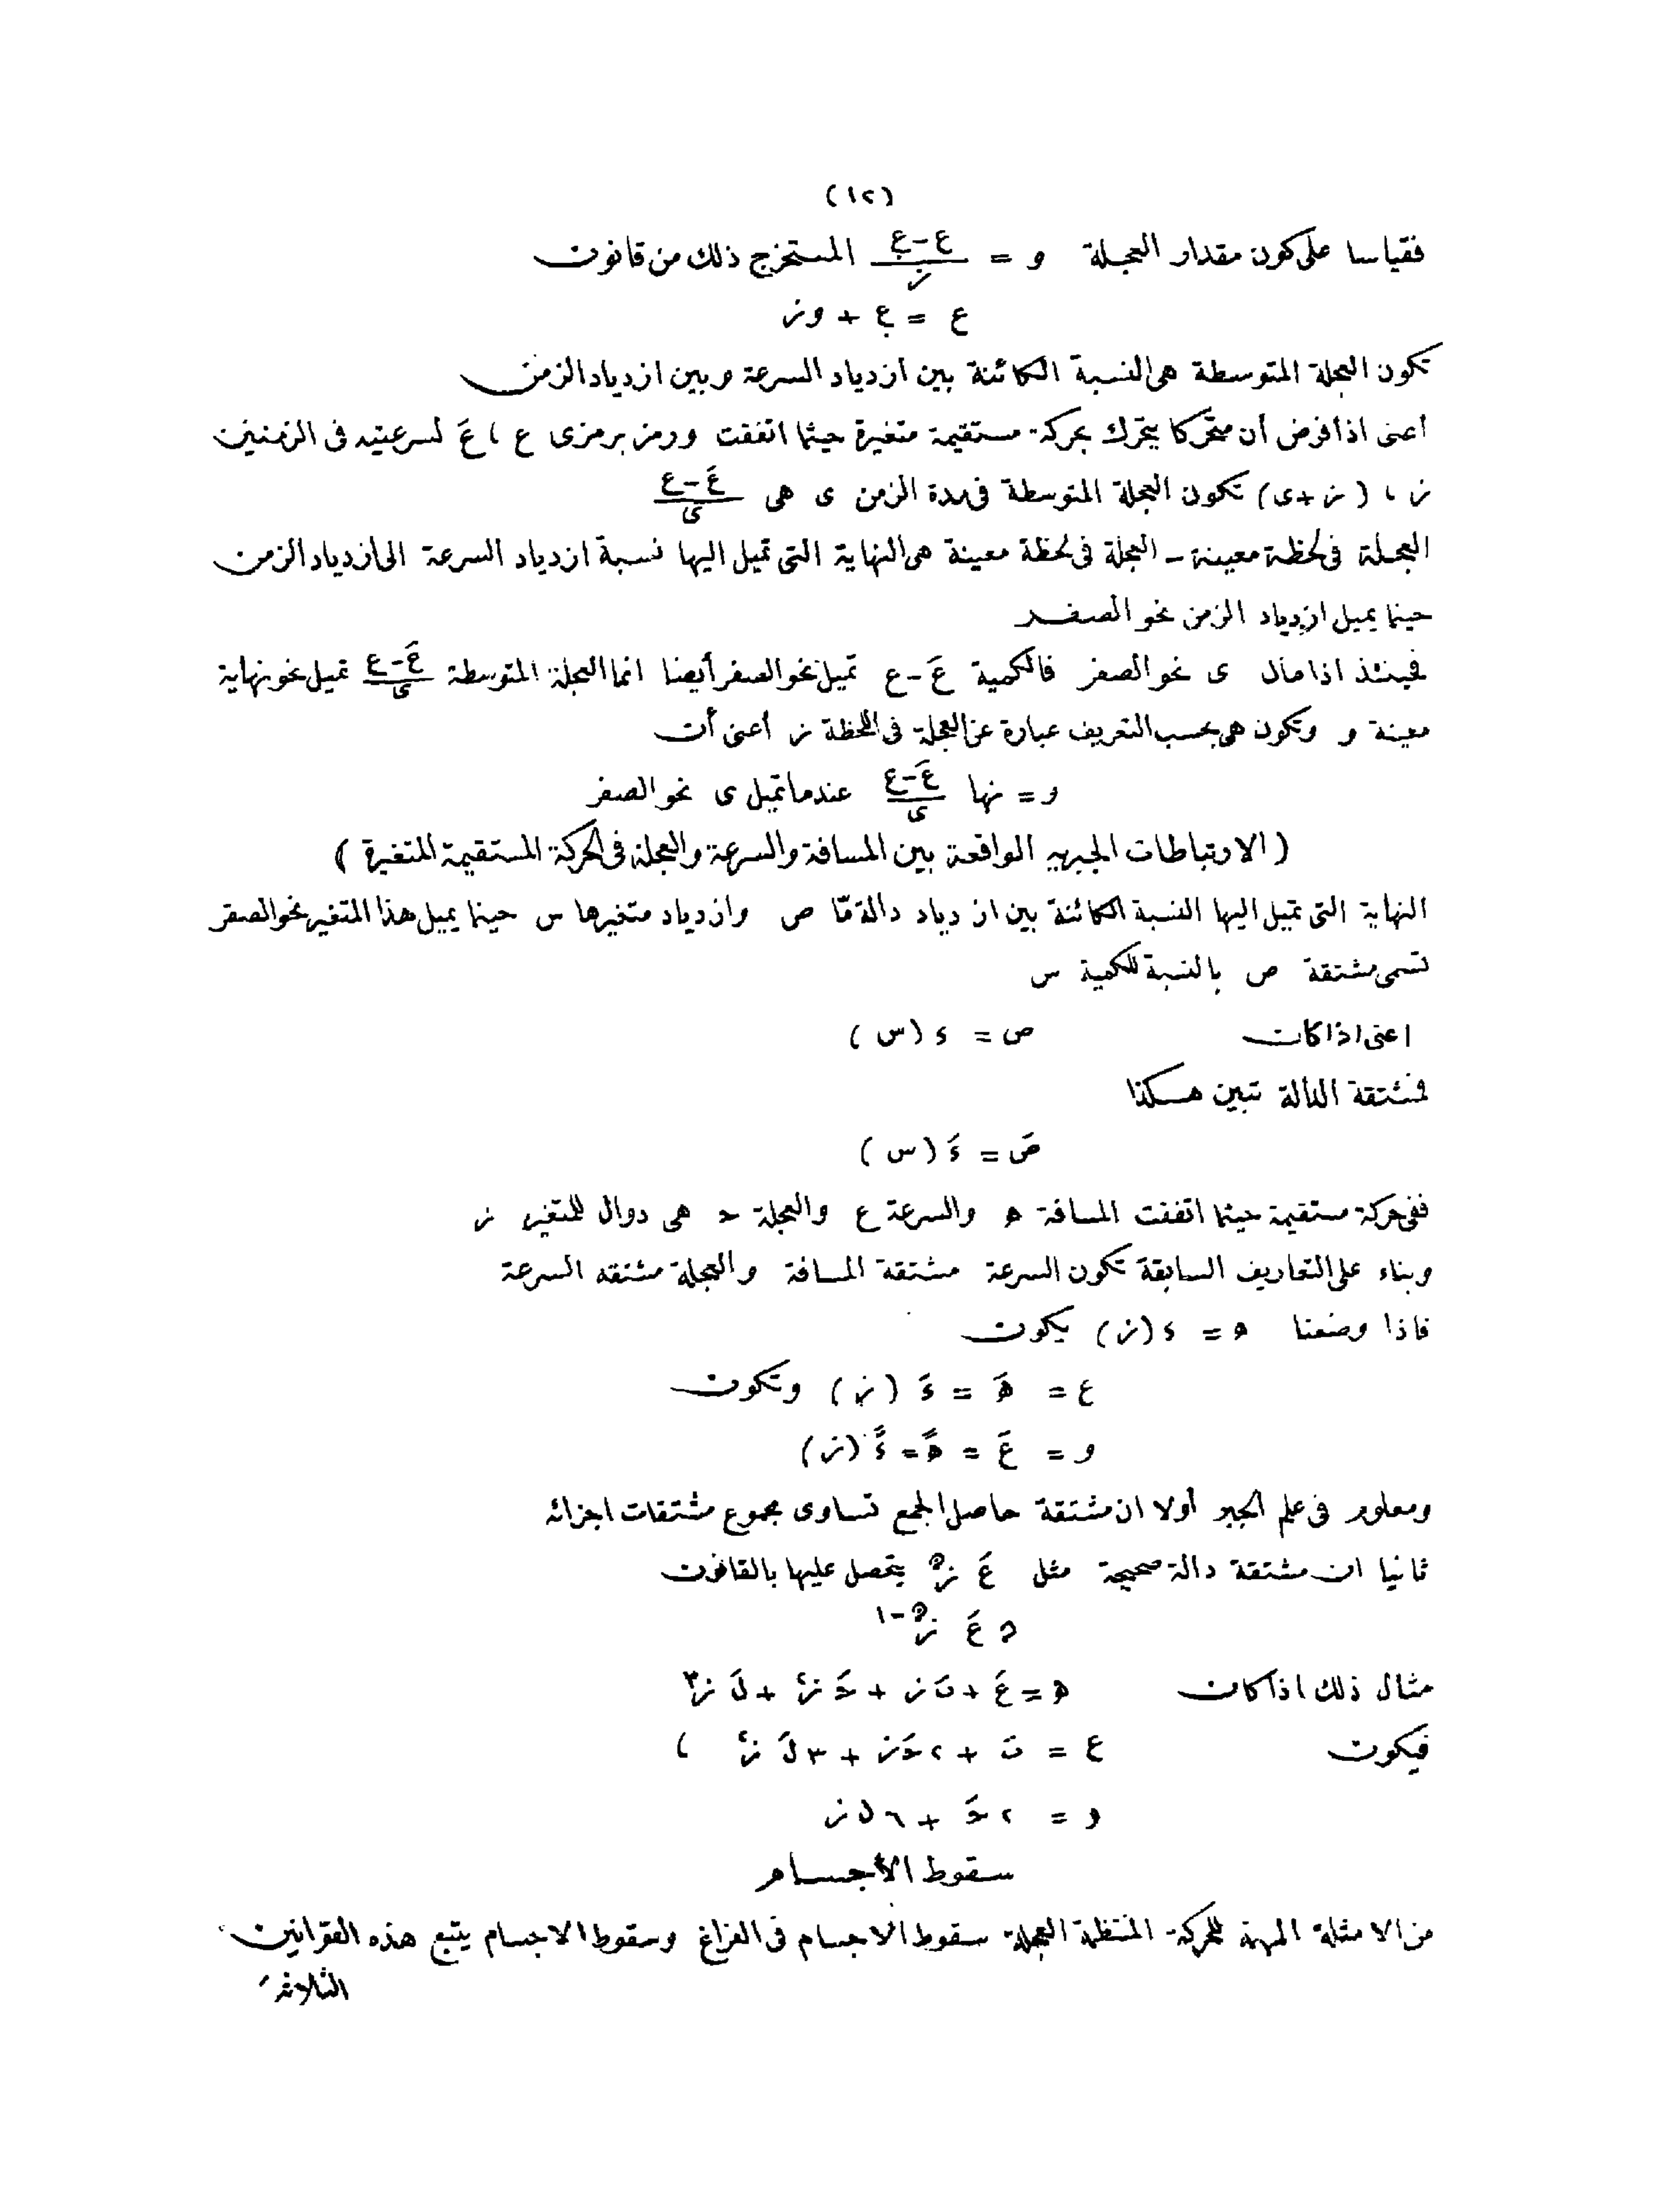 (١٢)
فقياسا على كون مقدار العجلة و = (ع - ع.)/ز المستخرج ذلك من قانون
ع = ع. + وز
تكون العجلة المتوسطة هى النسبة الكائنة بين ازدياد السرعة وبين ازدياد الزمن
أعنى اذا فرض أن متحركا يتحرك بحركة مستقيمة متغيرة حيثما اتفقت ورمز برمزى ع ، عَ لسرعتيه فى الزمنين
ز ، (ز + ى) تكون العجلة المتوسطة فى مدة الزمن ى هى (عَ - ع)/ى
العجلة فى لحظة معينة ــ العجلة فى لحظة معينة هى النهاية التى تميل اليها نسبة ازدياد السرعة الى ازدياد الزمن
حينما يميل ازدياد الزمن نحو الصفر
فحينئذ اذا مال ى نحو الصفر فالكمية عَ - ع تميل نحو الصفر أيضا انما العجلة المتوسطة (عَ - ع)/ى تميل نحو نهاية
معينة و وتكون هى بحسب التعريف عبارة عن العجلة فى اللحظة ز أعنى أن
و = نها (عَ - ع)/ى عندما تميل ى نحو الصفر
(الارتباطات الجبريه الواقعة بين المسافة والسرعة والعجلة فى الحركة المستقيمة المتغيرة)
النهاية التى تميل اليها النسبة الكائنة بين ازدياد دالة مّا ص وازدياد متغيرها س حينما يميل هذا المتغير نحو الصفر
تسمى مشتقة ص بالنسبة للكمية س
اعنى اذا كان ص = د (س)
فمشتقة الدالة تبين هكذا
صَ = دَ (س)
ففى حركة مستقيمة حيثما اتفقت المسافة ه والسرعة ع والعجلة ح هى دوال للمتغير ز
وبناء على التعاريف السابقة تكون السرعة مشتقة المسافة والعجلة مشتقه السرعة
فاذا وضعنا ه = د (ز) يكون
ع = هَ = دَ (ز) وتكون
و = عَ = هً = دً (ز)
ومعلوم فى علم الجبر أولا ان مشتقة حاصل الجمع تساوى مجموع مشتقات اجزائه
ثانيا ان مشتقة دالة صحيحة مثل عَ ز^ﻥ يتحصل عليها بالقانون
ﻥ عَ ز^ﻥ-١
مثال ذلك اذا كان ه = عَ + نَ ز + حَ ز^٢ + لَ ز^٣
فيكون ع = نَ + ٢ حَ ز + ٣ لَ ز^٢ ،
و = ٢ حَ + ٦ ل ز
سقوط الأجسام
من الامثلة المهمة للحركة المنتظمة العجلة سقوط الاجسام فى الفراغ وسقوط الاجسام يتبع هذه القوانين
الثلاثة